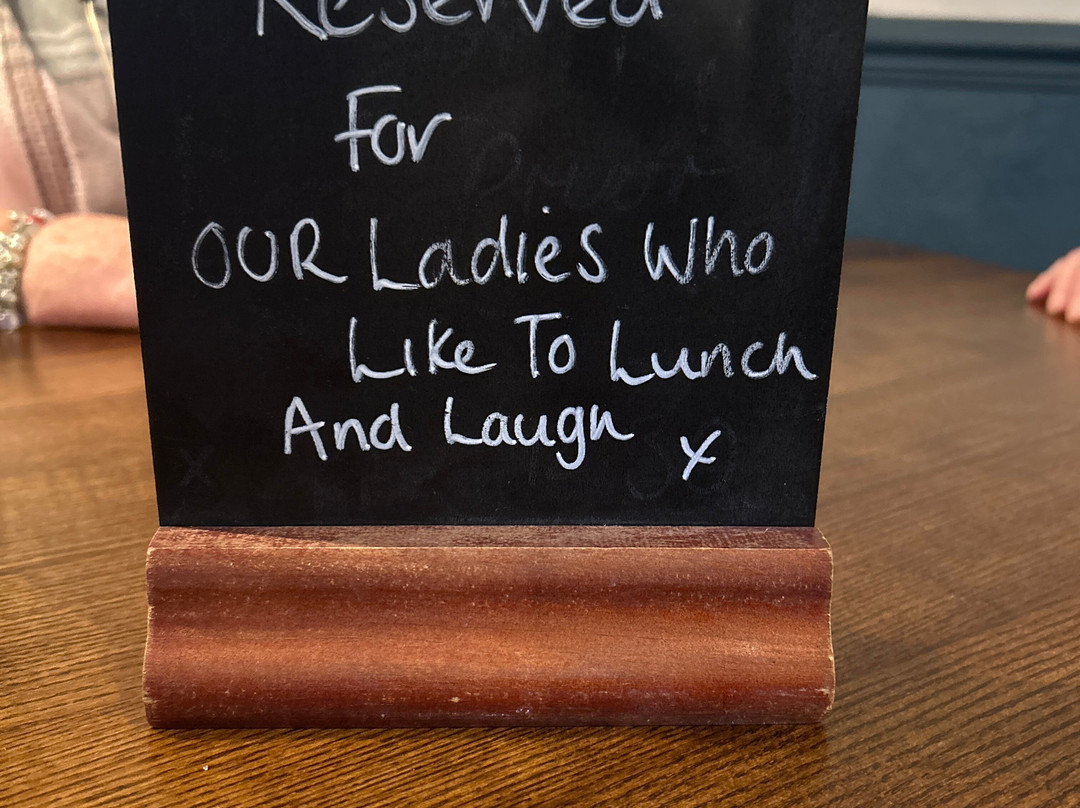 Reserved
For
OUR Ladies Who
Like To Lunch
And Laugh x